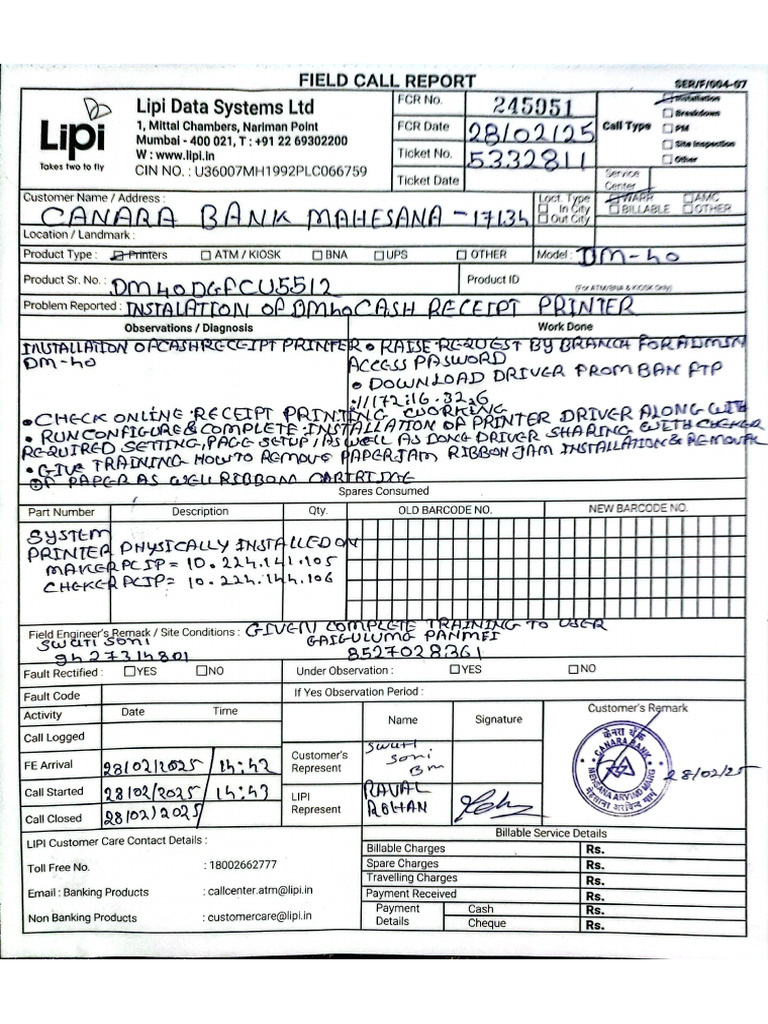 FIELD CALL REPORT
SER/F/004-07
Lipi
Takes two to fly
Lipi Data Systems Ltd
1, Mittal Chambers, Nariman Point
Mumbai - 400 021, T : +91 22 69302200
W : www.lipi.in
CIN NO. : U36007MH1992PLC066759
FCR No. 245951
FCR Date 28/02/25
Ticket No. 5332811
Ticket Date
Call Type
Installation
Breakdown
PM
Site Inspection
Other
Service Center
Customer Name / Address :
CANARA BANK MAHESANA - 17134
Loct. Type
In City
Out City
WARR AMC
BILLABLE OTHER
Location / Landmark :
Product Type : Printers ATM / KIOSK BNA UPS OTHER Model : DM-40
Product Sr. No. : DM40DGFCU5512 Product ID (For ATM/BNA & KIOSK Only)
Problem Reported : INSTALATION OF DM40 CASH RECEIPT PRINTER
Observations / Diagnosis Work Done
INSTALLATION OF CASH RECEIPT PRINTER
DM-40
• RAISE REQUEST BY BRANCH FOR ADMIN
ACCESS PASWORD
• DOWNLOAD DRIVER FROM BAN FTP
\\172.16.32.6
• CHECK ONLINE RECEIPT PRINTING WORKING
• RUN CONFIGURE & COMPLETE INSTALLATION OF PRINTER DRIVER ALONG WITH
REQUIRED SETTING, PAGE SETUP, AS WELL AS DONE DRIVER SHARING WITH CHEKER
• GIVE TRAINING HOW TO REMOVE PAPER JAM RIBBON JAM INSTALLATION & REMOVAL
OF PAPER AS WELL RIBBON CARTRIDGE
Spares Consumed
Part Number Description Qty. OLD BARCODE NO. NEW BARCODE NO.
SYSTEM
PRINTER PHYSICALLY INSTALLED ON
MAKER PC IP = 10.224.141.105
CHEKER PC IP = 10.224.144.106
Field Engineer's Remark / Site Conditions : GIVEN COMPLETE TRAINING TO USER
Swati Soni GAIGULUMG PANMEI
9427314801 8527028361
Fault Rectified : YES NO Under Observation : YES NO
Fault Code If Yes Observation Period :
Activity Date Time
Call Logged
FE Arrival 28/02/2025 14:42
Call Started 28/02/2025 14:43
Call Closed 28/02/2025
Name Signature
Customer's Represent Swati Soni BM
LIPI Represent RAVAL ROHAN
Customer's Remark
केनरा बैंक
CANARA BANK
28/02/25
LIPI Customer Care Contact Details :
Toll Free No. : 18002662777
Email : Banking Products : callcenter.atm@lipi.in
Non Banking Products : customercare@lipi.in
Billable Service Details
Billable Charges Rs.
Spare Charges Rs.
Travelling Charges Rs.
Payment Received Rs.
Payment Details Cash Rs.
Cheque Rs.